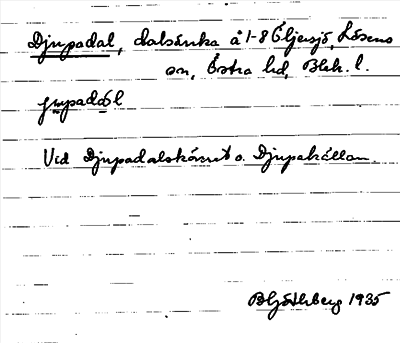 Djupadal, dalsänka å 1-8 Öljersjö, Lösens
sn, Östra hd, Blek. l.
jupadål
Vid Djupadalskärret o. Djupakällan
1935